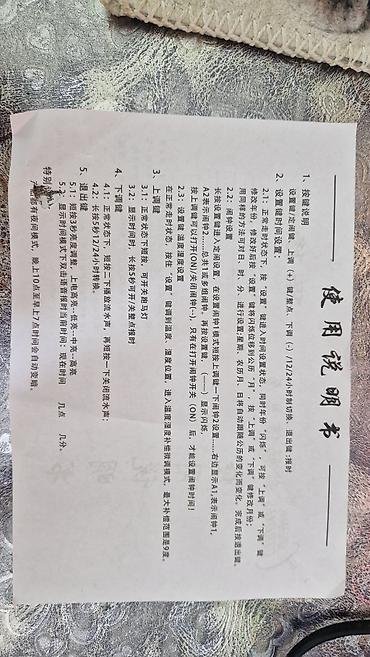 使用说明书
1、按键说明
设置键/定闹键、上调（+）键/整点、下调（-）/12/24小时制切换、退出键:报时
2、设置键时间设置:
2.1: 正常走时状态下，按“设置”键进入时间设置状态，同时年份“闪烁”，可按“上调”或“下调”键
修改年份，修改好后按“设置”键将闪烁位移到公历“月”，按“上调”或“下调”键修改月份；
用同样的方法可对日、时、分、进行设置;星期、农历月、日将自动跟随公历的变化而变化，完成后按退出键。
2.2: 闹钟设置
长按设置键进入定闹设置，在设置闹钟1模式短按上调键一下闹钟2设置……右边显示A1,表示闹钟1,
A2表示闹钟2……总共1或多组闹钟。再按设置键，（——）显示闪烁，
按上调键可以打开(ON)/关闭闹钟(--)，只有在打开闹钟开关（ON）后，才能设置闹钟时间!
2.3: 设置键 温度湿度设置
在正常走时状态，按在“设置”键调到温度、湿度位置，进入温度湿度补偿微调模式，最大补偿范围是9度。
3、上调键
3.1: 正常状态下短按，可开关跑马灯
3.2: 显示时间时，长按5秒可开/关整点报时
4、下调键
4.1: 正常状态下，短按二下播放流水声，再短按一下关闭流水声；
4.2: 长按5秒12/24小时转换。
5、退出键
5.1: 短按3秒亮度调整，上电高亮--低亮--中亮--高亮
5.2: 显示时间模式下双击语音报时当前时间，现在时间 几点 几分。
特别
都有夜间模式，晚上10点至早上7点时间会自动变暗。